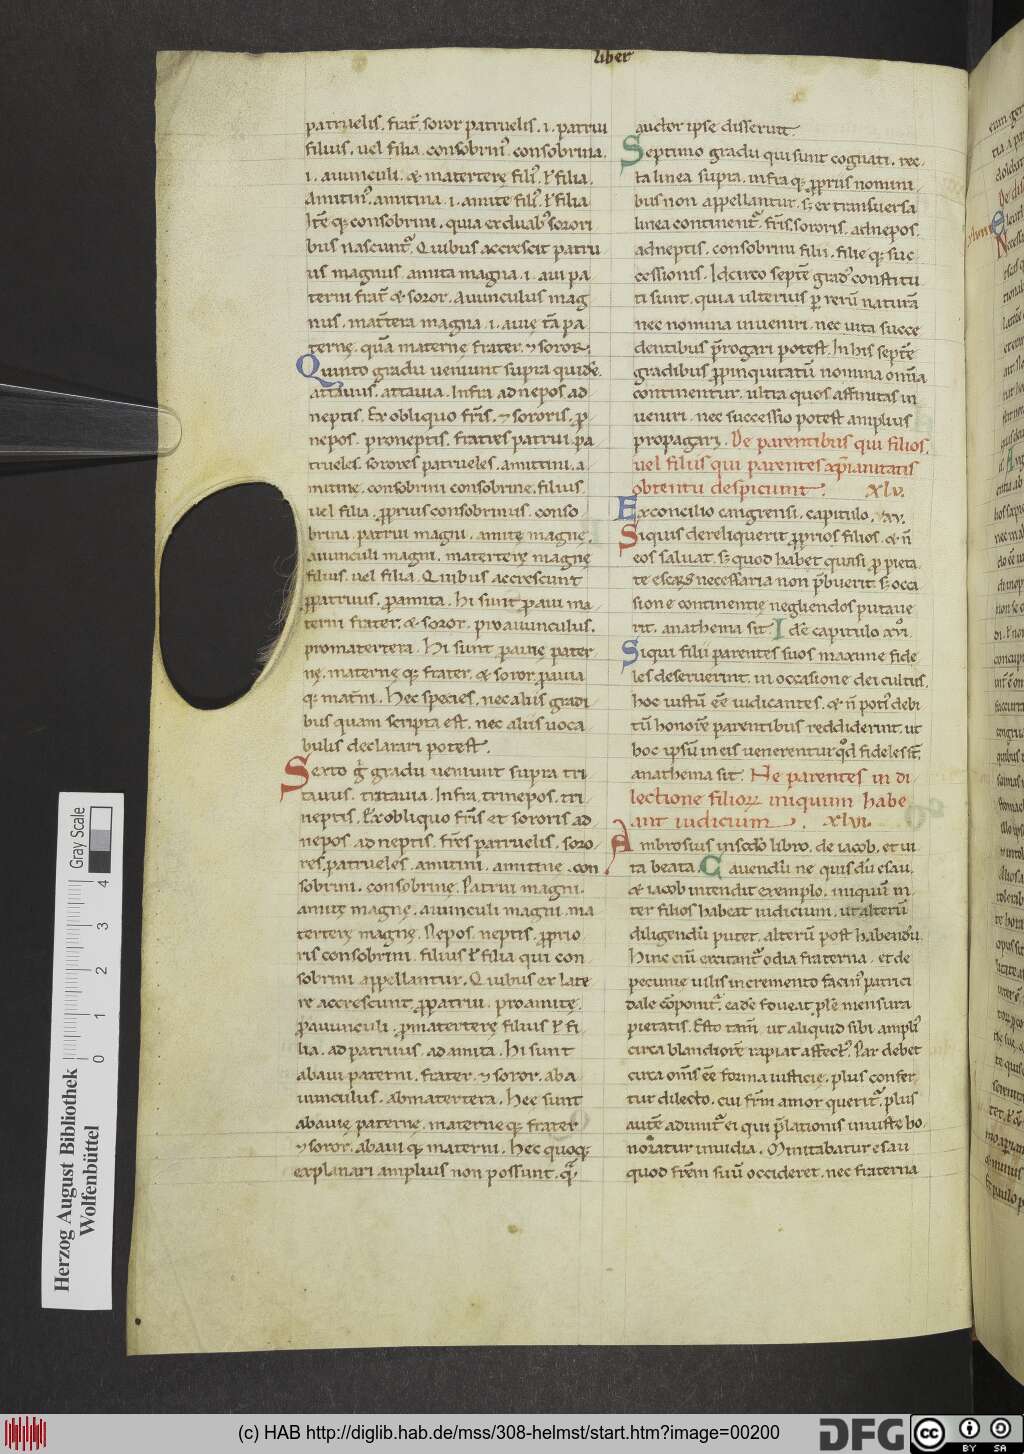 liber
patruelis. frat̄. soror patruelis. i. patrui
filius. uel filia. consobrin᷒. consobrina.
i. auunculi. & materterę fili᷒. ł filia.
Amitin᷒. amitina. i. amite fili᷒. ł filia.
It̄ę q; consobrini. quia ex duab᷒ sorori
bus nascunt᷑. Quibus accrescit patru
us magnus. amita magna. i. aui pa
terni frat̄ & soror. Auunculus mag
nus. mat̄tera magna. i. auię tā pa
ternę. quā maternę frater. ⁊ soror.
Quinto gradu ueniunt supra quidē.
attauus. attauia. Infra adnepos ad
neptis. Ex obliquo fr̄is. ⁊ sororis. ꝓ
nepos. proneptis. fratres patrui. pa
trueles. sorores patrueles. amittini. a
mitine. consobrini consobrine. filius.
uel filia. ꝓprius consobrinus. conso
brina. patrui magni. amitę magnę.
auunculi magni. materterę magnę
filius. uel filia. Quibus accrescunt
ꝓpatruus. ꝓamita. hi sunt ꝓaui ma
terni frater. & soror. proauunculus.
promatertera. Hi sunt ꝓauię pater
nę. maternę q; frater. & soror ꝓauia
q; mat̄ni. Hec species. nec aliis gradi
bus quam scripta est. nec aliis uoca
bulis declarari potest.
Sexto g̊ gradu ueniunt supra tri
tauus. tritauia. Infra. trinepos. tri
neptis. Ex obliquo fr̄is et sororis ad
nepos. adneptis. fr̄es patruelis. soro
res. patrueles. amitini. amitine. con
sobrini. consobrinę. Patrui magni.
amitę magnę. auunculi magni. ma
terterę magnę. Nepos. neptis. ꝓprio
ris consobrini. filius ł filia qui con
sobrini appellantur. Quibus ex late
re accrescunt. ꝓpatrui. proamitę.
ꝓauunculi. ꝓmaterterę filius ł fi
lia. adpatruus. adamita. Hi sunt
abaui paterni. frater. ⁊ soror. aba
uunculus. abmatertera. Hee sunt
abauię paternę. materne q; frater
⁊ soror. abaui q; materni. Hec quoq;
explanari amplius non possunt. q̄
auctor ipse disseruit.
Septimo gradu qui sunt cognati. rec
ta linea supra. infra q; ꝓpriis nomini
bus non appellantur. s; ex transuersa
linea continent᷑. fr̄is. sororis. adnepos.
adneptis. consobrini filii. filię q; suc
cessionis. Idcirco septē grad᷒ constitu
ti sunt. quia ulterius ꝑ rerū naturā
nec nomina inueniri. nec uita succe
dentibus p̄rogari potest. In his septē
gradibus ꝓpinquitatū nomina om̄ia
continentur. ultra quos affinitas in
ueniri. nec successio potest amplius
propagari. De parentibus qui filios.
uel filiis qui parentes xp̄ianitatis
obtentu despiciunt. XLV.
Ex concilio cangrensi. capitulo. xv.
Siquis dereliquerit ꝓprios filios. & n̄
eos saluat. s; quod habet quasi ꝓ pieta
te necessaria non p̄buerit. s; occa
sione continentię negliendos putaue
rit. anathema sit. Idē capitulo xvi.
Siqui filii parentes suos maxime fide
les deseruerint. in occasione dei cultus.
hoc iustū eē iudicantes. & n̄ poti᷒ debi
tū honorē parentibus reddiderint. ut
hoc ipsū in eis uenerentur qd fideles st̄.
anathema sit. Ne parentes in di
lectione filiorꝝ iniquum habe
ant iudicium. XLVI.
Ambrosius in scdo libro. de iacob. et ui
ta beata. Cauendū ne quis dū esau.
& iacob intendit exemplo. iniquū in
ter filios habeat iudicium. ut alterū
diligendū putet. alterū post habendū.
Hinc eni excitant᷑ odia fraterna. et de
pecunie uilis incremento facin᷒ patrici
dale cōponit᷑. eadē foueat ple mensura
pietatis. Esto tam̄. ut aliquid sibi ampli᷒
circa blandiorē rapiat affect᷒. Par debet
circa om̄s eē forma iusticię. plus confer
tur dilecto. cui fr̄m amor querit᷑. plus
autē adimit᷑ ei qui p̄lationis iniuste ho
noratur inuidia. Minitabatur esau
quod fr̄em suū occideret. nec fraterna
Herzog August Bibliothek
Wolfenbüttel
0 1 2 3 4
Gray Scale
(c) HAB http://diglib.hab.de/mss/308-helmst/start.htm?image=00200
DFG
cc BY SA